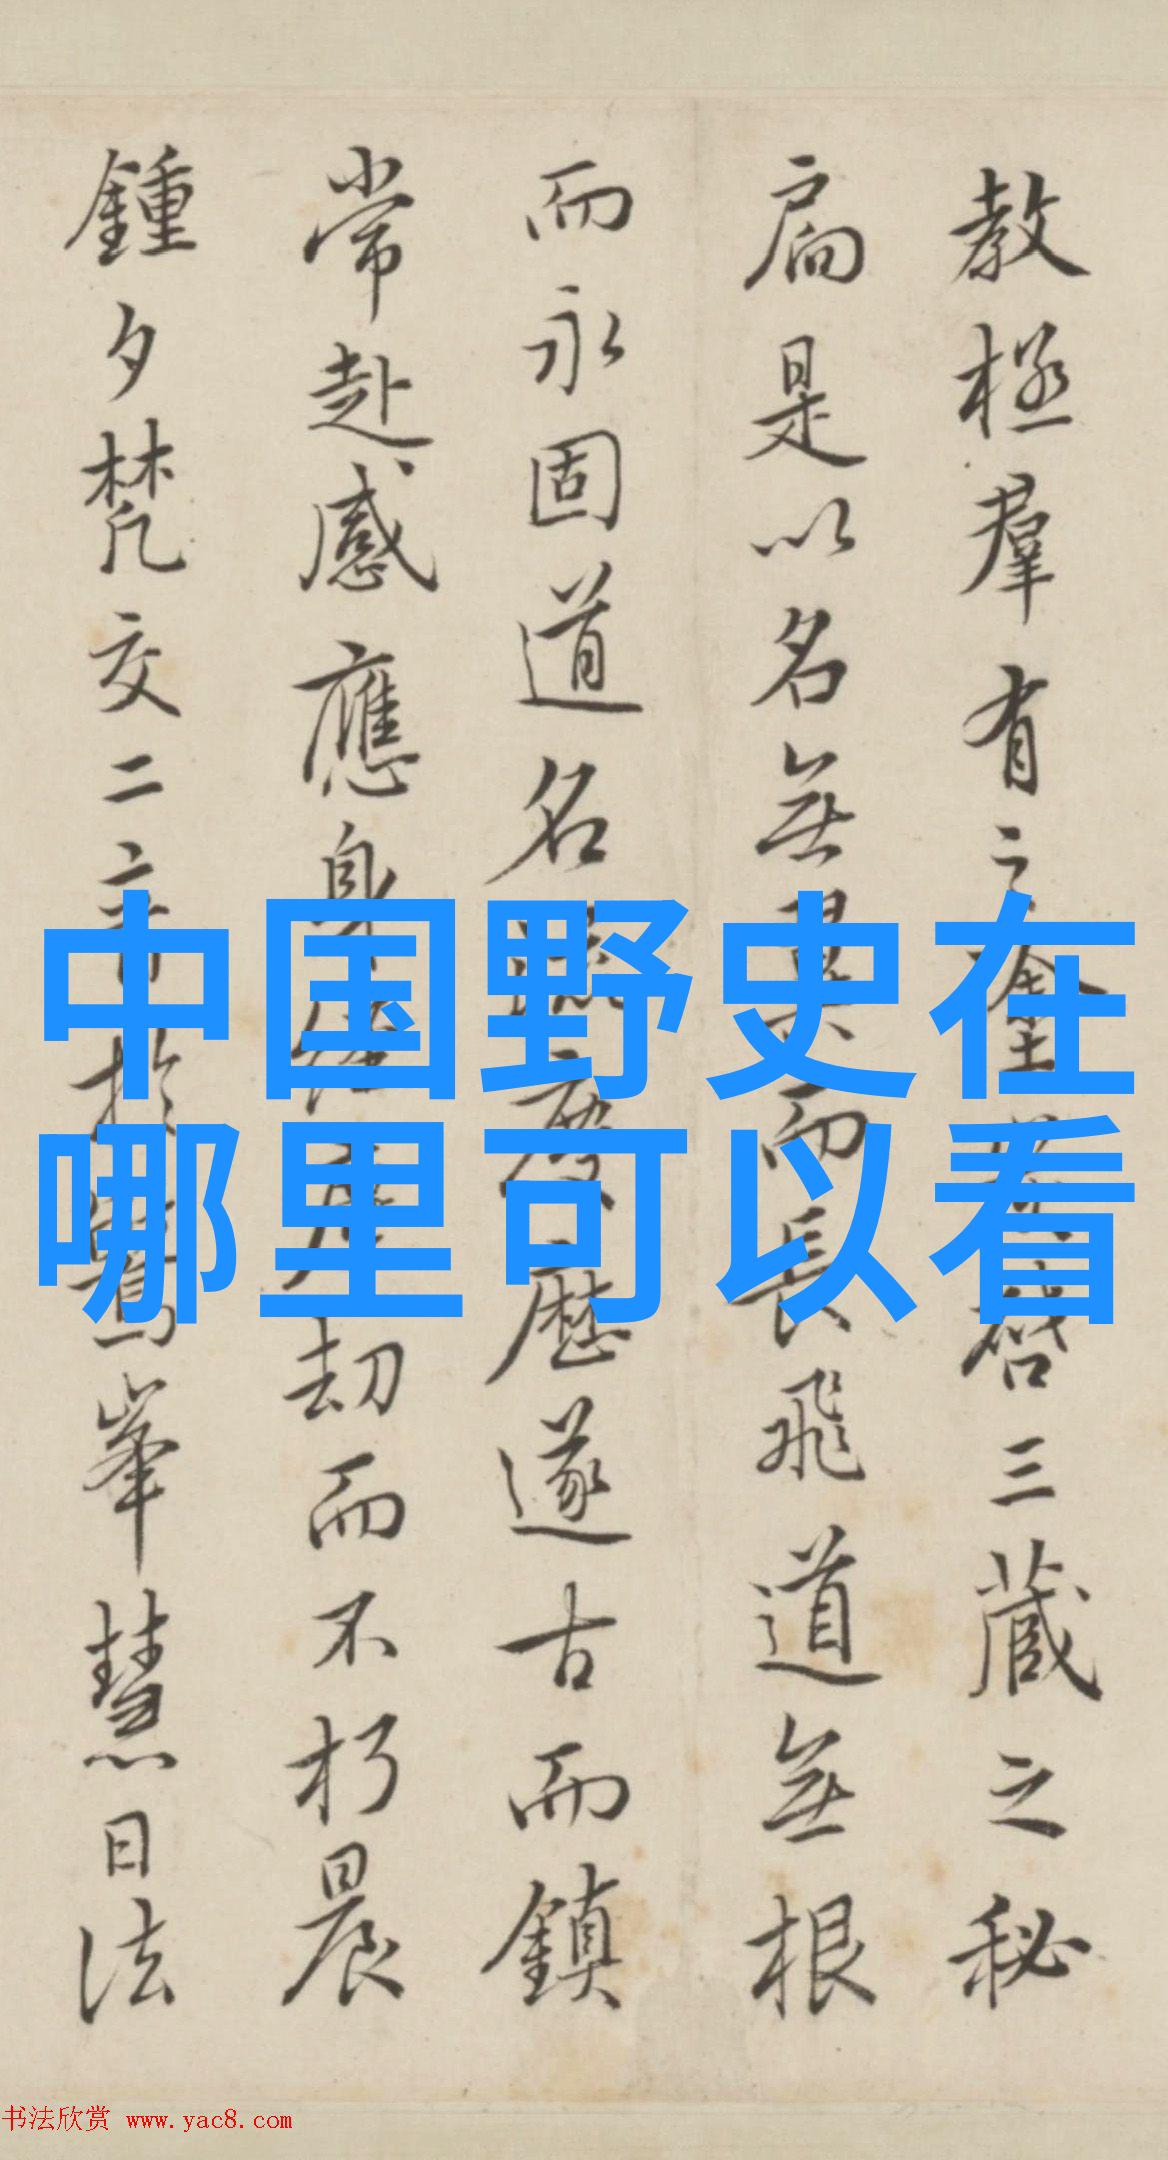 教拯羣有之塗啓三藏之秘
扃是以名無翼而長飛道無根
而永固道名流慶歷遂古而鎮
常赴感應身經塵劫而不朽晨
鍾夕梵交二音於鷲峯慧日法
中国野史在
哪里可以看
书法欣赏 www.yac8.com